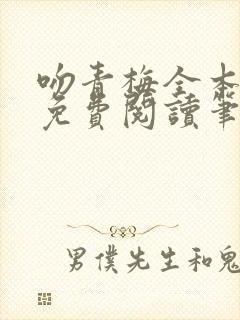 吻青梅全本
免費閱讀筆
男僕先生和鬼